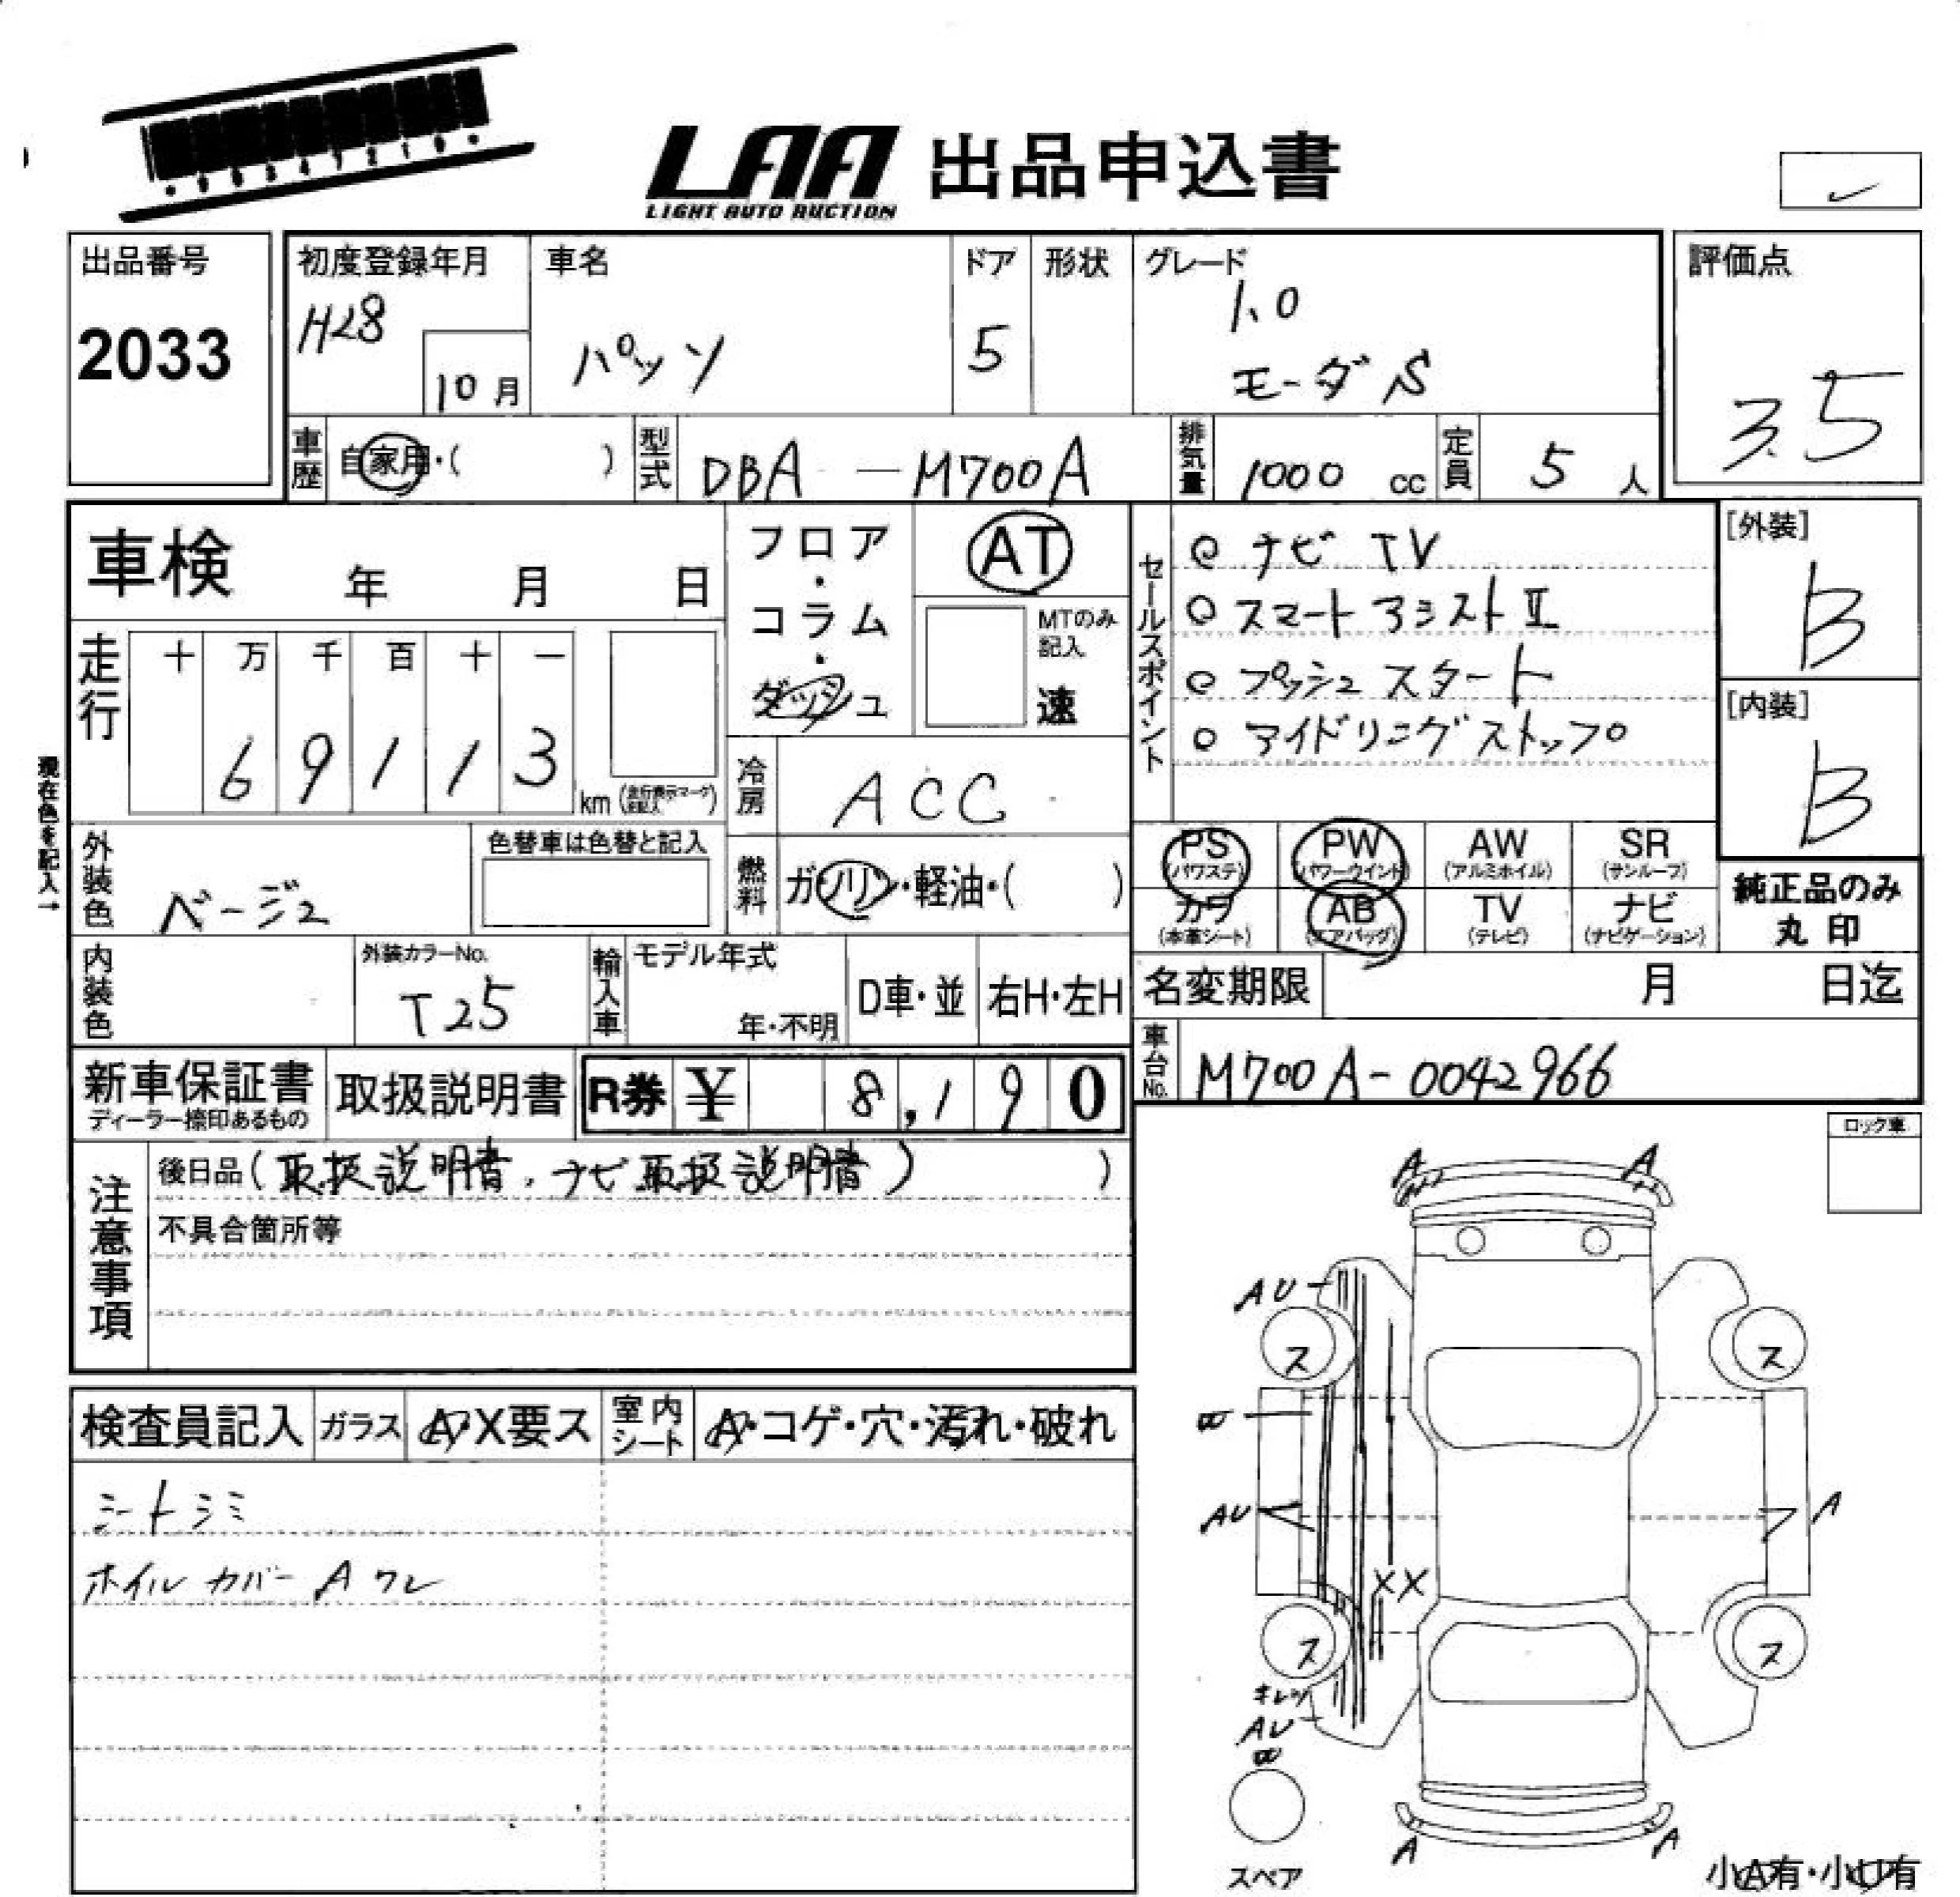 LAA 出品申込書
LIGHT AUTO AUCTION
出品番号
2033
初度登録年月
H28
10月
車名
パッソ
ドア
5
形状
グレード
1.0
モーダ S
評価点
3.5
車歴
自家用・( )
型式
DBA - M700A
排気量
1000 cc
定員
5 人
車検 年 月 日
フロア・コラム・ダッシュ
AT
MTのみ記入
速
セールスポイント
ナビ TV
スマートアシストⅡ
プッシュスタート
アイドリングストップ
[外装]
B
[内装]
B
走行
十 万 千 百 十 一
6 9 1 1 3
km
現在色を記入→
冷房
ACC
外装色
ベージュ
色替車は色替と記入
燃料
ガソリン・軽油・( )
PS (パワステ)
PW (パワーウインド)
AW (アルミホイル)
SR (サンルーフ)
カワ (本革シート)
AB (エアバッグ)
TV (テレビ)
ナビ (ナビゲーション)
純正品のみ
丸印
内装色
外装カラーNo.
T25
輸入車
モデル年式
年・不明
D車・並
右H・左H
名変期限 月 日迄
車台No.
M700A-0042966
新車保証書
ディーラー捺印あるもの
取扱説明書
R券 ¥ 8,190
ロック車
注意事項
後日品(取扱説明書、ナビ取扱説明書)
不具合箇所等
検査員記入
ガラス
A・X要ス
室内シート
A・コゲ・穴・汚れ・破れ
シートシミ
ホイルカバー A ワレ
A A
AU
ス ス
AU
A
XX
ス ス
キレツ
AU
A A
スペア
小A有・小U有